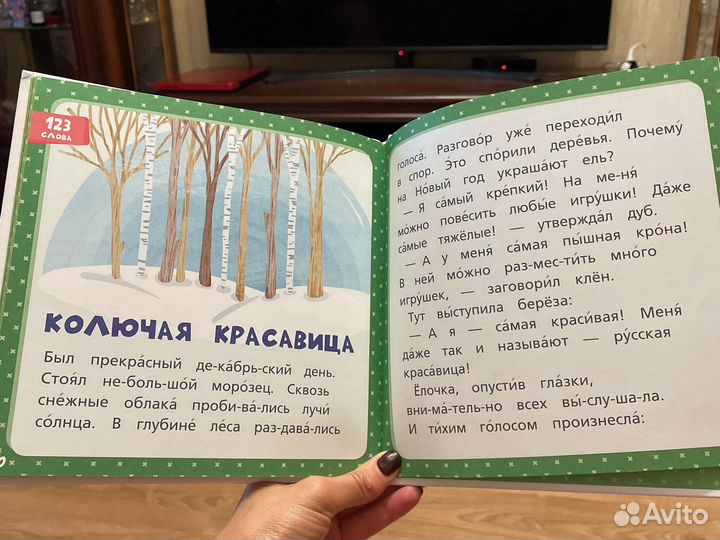 123
СЛОВА
КОЛЮЧАЯ КРАСАВИЦА
Был прекра́сный де-ка́брь-ский день.
Стоя́л не-боль-шо́й моро́зец. Сквозь
сне́жные облака́ проби-ва́-лись лучи́
со́лнца. В глубине́ ле́са раз-дава́-лись
голоса́. Разгово́р уже́ переходи́л
в спор. Э́то спо́рили дере́вья. Почему́
на Но́вый год украша́ют ель?
— Я са́мый кре́пкий! На ме-ня́
мо́жно пове́сить любы́е игру́шки! Да́же
са́мые тяжёлые! — утвержда́л дуб.
— А у меня́ са́мая пы́шная кро́на!
В ней мо́жно раз-мес-ти́ть мно́го
игру́шек, — заговори́л клён.
Тут вы́ступила берёза:
— А я — са́мая краси́вая! Меня́
да́же так и называ́ют — ру́сская
краса́вица!
Ёлочка, опусти́в гла́зки,
вни-ма́-тель-но всех вы́-слу-ша-ла.
И ти́хим го́лосом произнесла́:
Avito